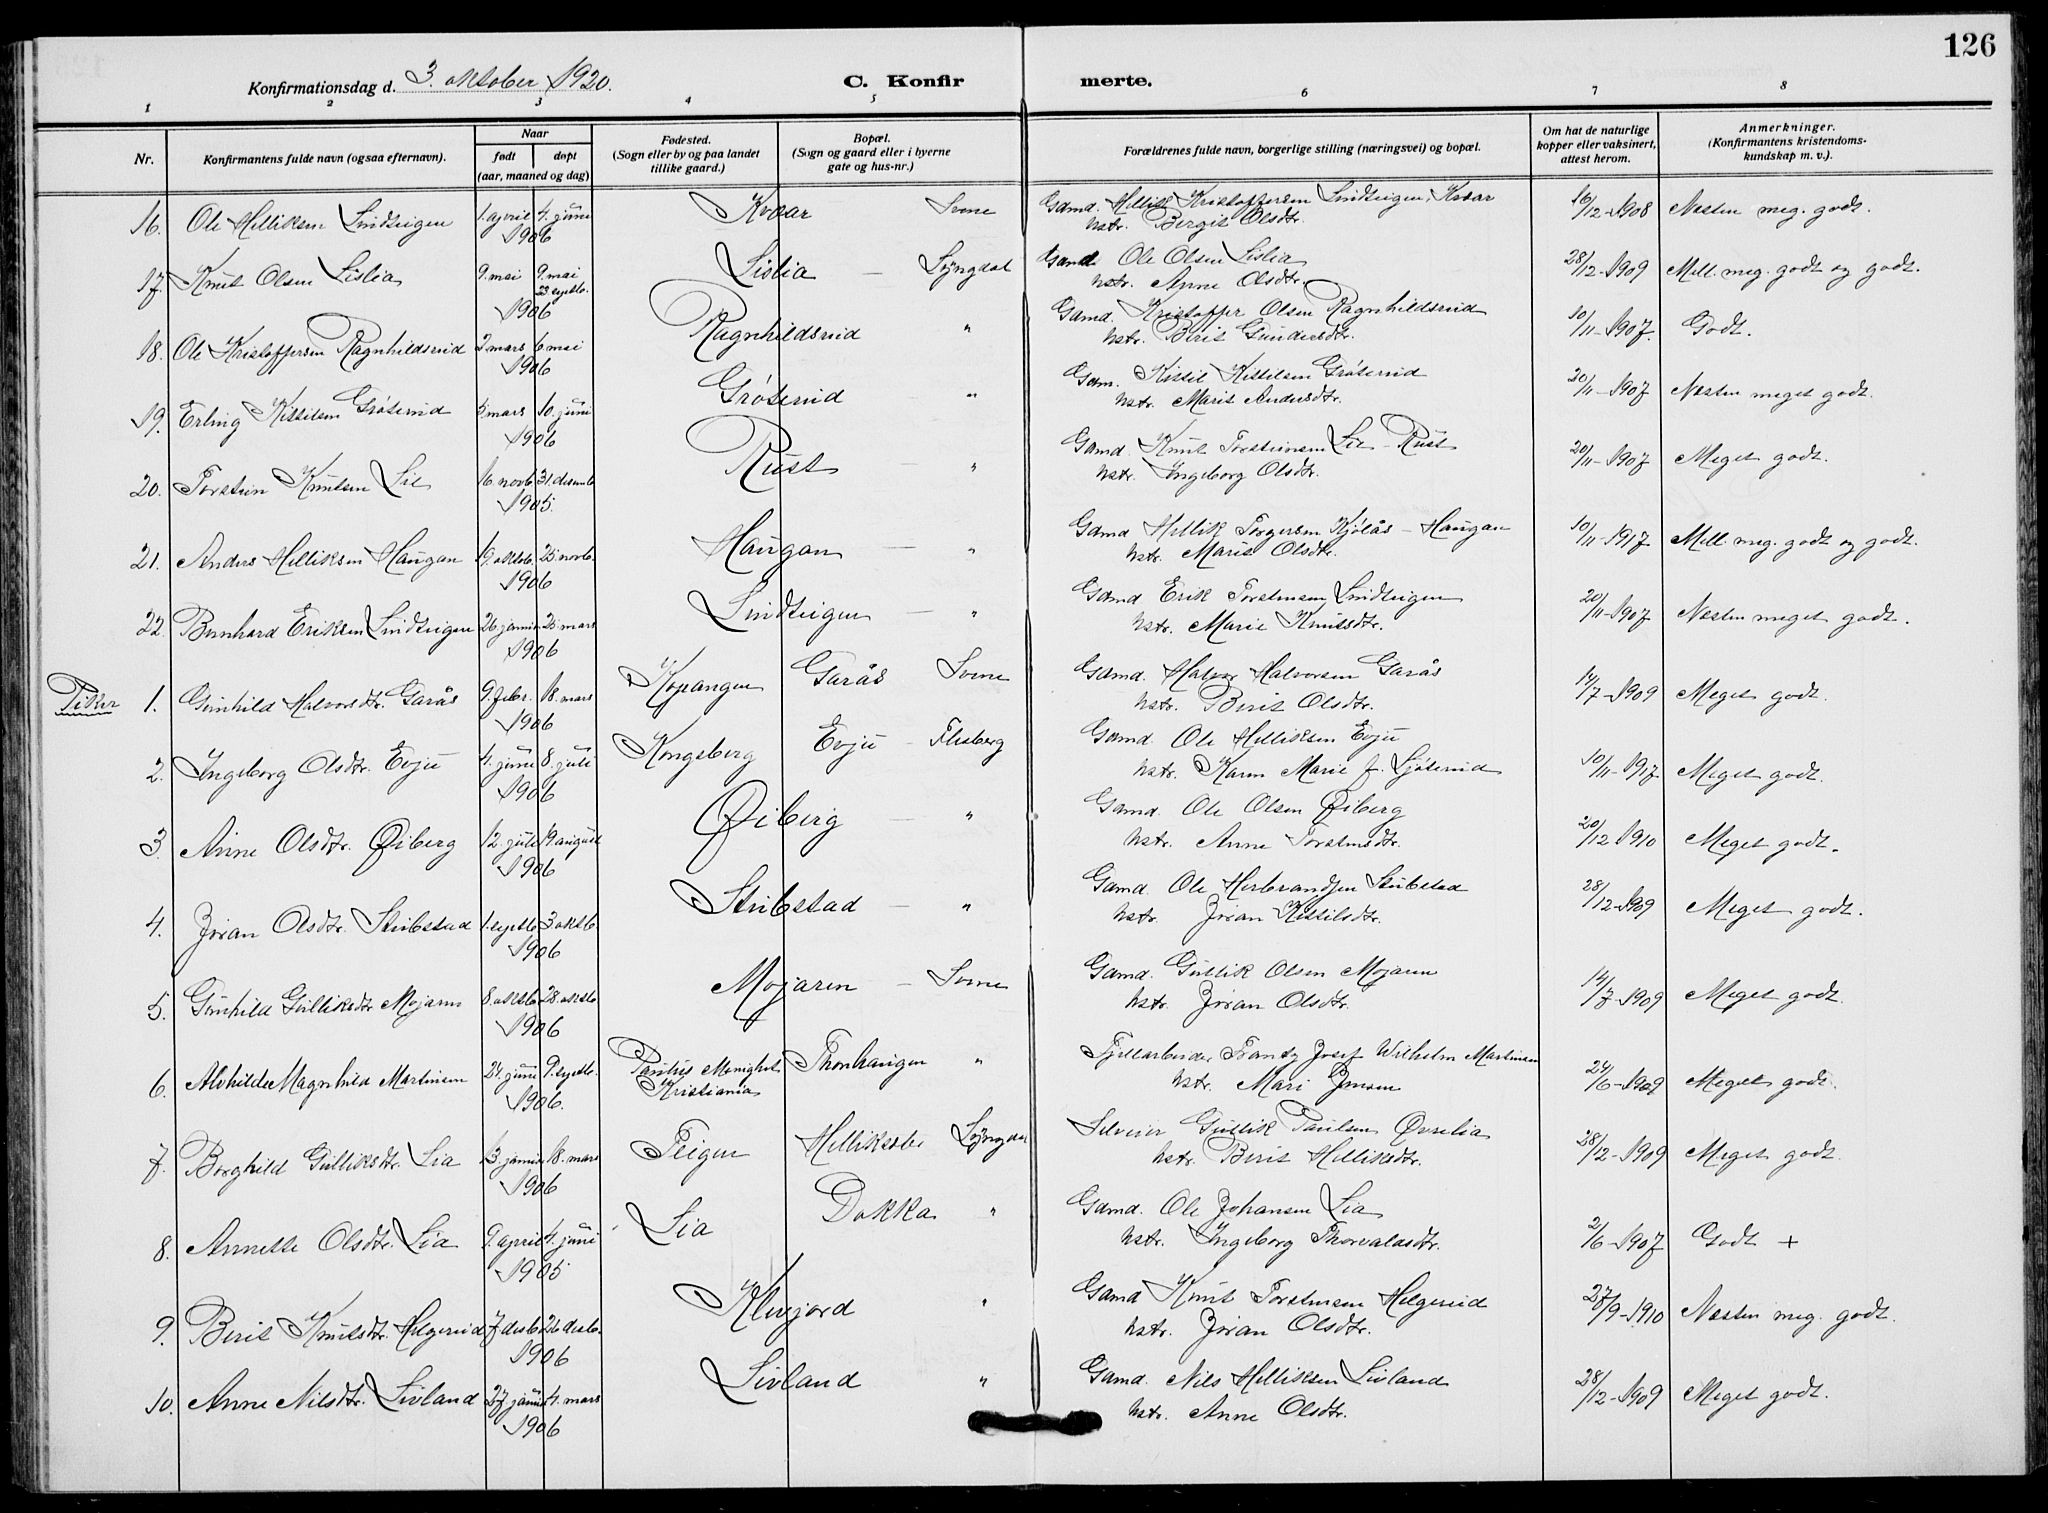 126
Konfirmationsdag d. 3. oktober 1920. C. Konfirmerte.
1 2 3 4 5 6 7 8
Nr. Konfirmantens fulde navn (ogsaa efternavn). Naar født døpt (aar, maaned og dag) Fødested. (Sogn eller by og paa landet tillike gaard.) Bopæl. (Sogn og gaard eller i byerne gate og hus-nr.) Forældrenes fulde navn, borgerlige stilling (næringsvei) og bopæl. Om hat de naturlige kopper eller vaksinert, attest herom. Anmerkninger. (Konfirmantens kristendomskundskap m. v.).
16. Ole Helliksen Lindteigen 1. april 4. juni Kvaar Svene Gamd. Hellik Kristoffersen Lindteigen, Kvaar 16/12-1908 Næsten meg. godt.
1906 hstr. Bergit Olsdtr.
17. Knut Olsen Lislia 9. mai 23. septb. Lislia — Lyngdal Gamd. Ole Olsen Lislia 28/12-1909 Mell. meg. godt og godt.
1906 hstr. Anne Olsdtr.
18. Ole Kristoffersen Ragnhildsrud 2. mars 6. mai Ragnhildsrud " Gamd. Kristoffer Olsen Ragnhildsrud 10/11-1907. Godt.
1906 hstr. Birit Gundersdtr.
19. Erling Kittilsen Grøterud 5. mars 10. juni Grøterud " Gam. Kittil Kittilsen Grøterud 20/11-1907 Næsten meget godt.
1906 hstr. Marit Andersdtr.
20. Torstein Knutsen Lie 16. novb. 31. desemb. Rust — " Gamd. Knut Torsteinsen Lie - Rust 20/11-1907 Meget godt.
1905. hstr. Ingeborg Olsdtr.
21. Anders Helliksen Haugan 19. oktob. 25. novb. Haugan — " Gamd Hellik Torgersen Kjølås - Haugan 10/11-1917 Mell. meg. godt og godt.
1906 hstr. Marit Olsdtr.
22. Bernhard Eriksen Lindteigen 26. januar 25. mars Lindteigen — " Gamd Erik Torstensen Lindteigen 20/11-1907 Næsten meget godt.
1906 hstr. Marie Knutsdtr.
Piker 1. Gunhild Halvorsdtr. Garås 9. febr. 18. mars Kopangen Garås — Svene Gamd. Halvor Halvorsen Garås 14/7-1909 Meget godt.
1906 hstr. Birit Olsdtr.
2. Ingeborg Olsdtr. Evju 4. juni 8. juli Kongsberg Evju — Flesberg Gamd. Ole Helliksen Evju 10/11-1917 Meget godt.
1906 hstr. Karen Marie f. Ljøterud
3. Anne Olsdtr. Øiberg 12. juli 19 august Øiberg — " Gamd. Ole Olsen Øiberg 20/12 1910 Meget godt.
1906 hstr. Anne Torstensdtr.
4. Jøran Olsdtr. Stubstad 1. septb. 3 oktb. Stubstad — " Gamd. Ole Herbrandsen Stubstad 28/12-1909 Meget godt.
1906 hstr. Jøran Kittilsdtr.
5. Gunhild Gulliksdtr Mojaren 8. oktb. 28. oktb. Mojaren — Svene Gamd. Gullik Olsen Mojaren 14/7-1909 Meget godt.
1906 hstr. Jøran Olsdtr.
6. Alvhilde Magnhild Martinsen 24. juni 9. septb. Paulus Menighet Kristiania Thonhaugen " Frantz Josef Wilhelm Martinsen 24/6-1909 Meget godt.
1906. hstr. Mari Jensen
7. Borghild Gulliksdtr. Lia 13. januar 18. mars Teigen Helliksebr Lyngdal Gullik Paulsen Øvrelia 28/12-1909 Meget godt.
1906 hstr. Birit Helliksdtr.
8. Annette Olsdtr. Lia 9. april 4. juni Lia Dokka " Gamd. Ole Johansen Lia 2/6-1907 Godt +
1905 hstr. Ingeborg Thorvaldsdtr.
9. Birit Knutsdtr. Helgerud 7 desb. 26 desb. Klevjord " Gamd Knut Torstensen Helgerud 27/9-1910 Næsten meg. godt.
1906 hstr. Jøran Olsdtr.
10. Anne Nilsdtr. Livland 27. januar 4. mars Livland " Gamd. Nils Helliksen Livland 28/12-1909 Meget godt.
1906 hstr. Anne Olsdtr.